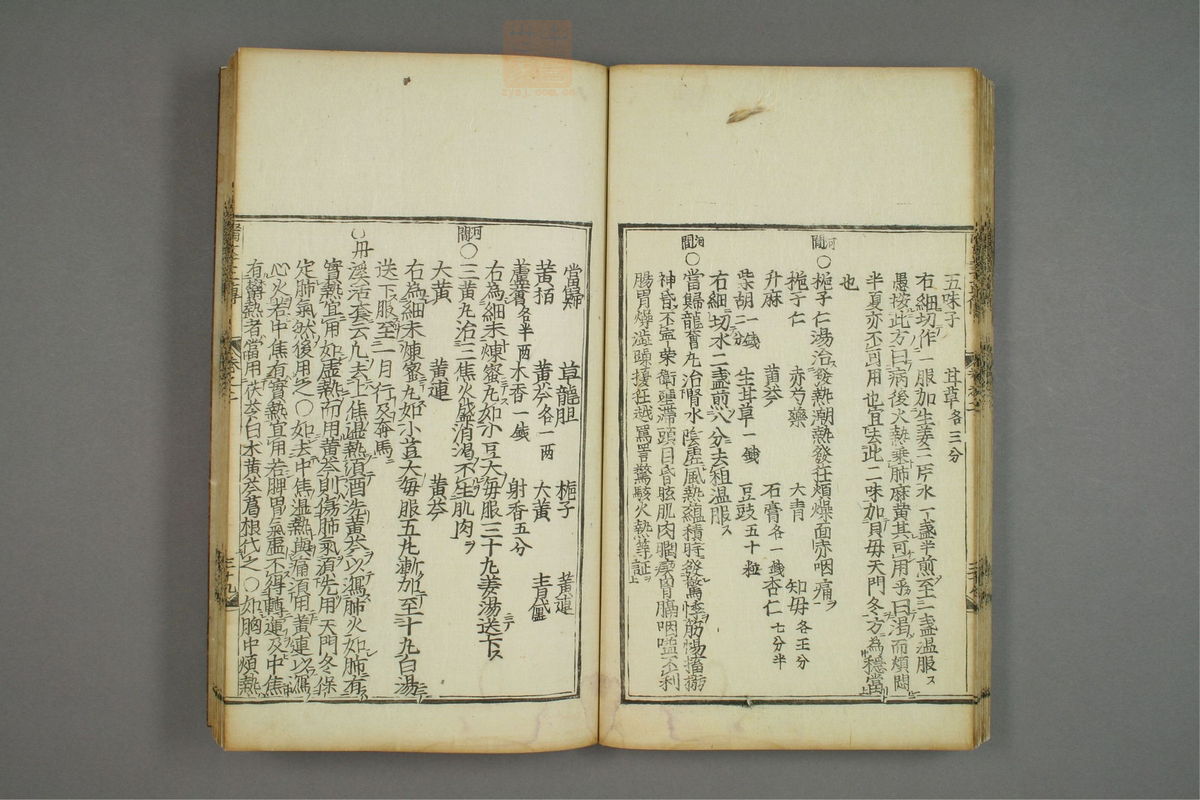 五味子 甘草各三分
右細切作一服加生姜三片水一盞半煎至一盞温服ス
愚按此方曰病後火熱乗肺麻黄其可用乎曰渇而煩悶
半夏亦不可用也宜去此二味加貝母天門冬方為穏當
也
河間
○梔子仁湯治發熱潮熱發狂煩燥面赤咽痛
梔子仁 赤芍藥 大青 知母各五分
升麻 黄芩 石膏各一錢 杏仁七分半
柴胡一錢 生甘草一錢 豆豉五十粒
右細切水二盞煎八分去粗温服ス
河間
○當歸龍薈丸治腎水陰虚風熱蘊積時發驚悸筋惕搐搦
神昏不寧榮衛壅滞頭目昏眩肌肉瞤瘛胷膈咽嗌不利
腸胃燥澁躁擾狂越罵詈驚駭火熱等証
當歸 草龍胆 梔子 黄連
黄栢 黄芩各一两 大黄 青黛
蘆薈各半两 木香一錢 射香五分
右為細末煉蜜丸如小豆大毎服三十丸姜湯送下ス
河間
○三黄丸治三焦火盛消渇不生肌肉
大黄 黄連 黄芩
右為細末煉蜜丸如小豆大毎服五丸漸加至三十丸白湯
送下服至一月行及奔馬
○丹溪活套云凡去上焦虚熱須酒洗黄芩以瀉肺火如肺有
實熱宜用如虚熱而用黄芩則傷肺氣須先用天門冬保
定肺氣然後用之○如去中焦温熱與痛須用黄連以瀉
心火若中焦有實熱宜用若脾胃氣虚不得轉運及中焦
有鬱熱者當用茯苓白朮黄芩葛根代之○如胸中煩熱
三十九